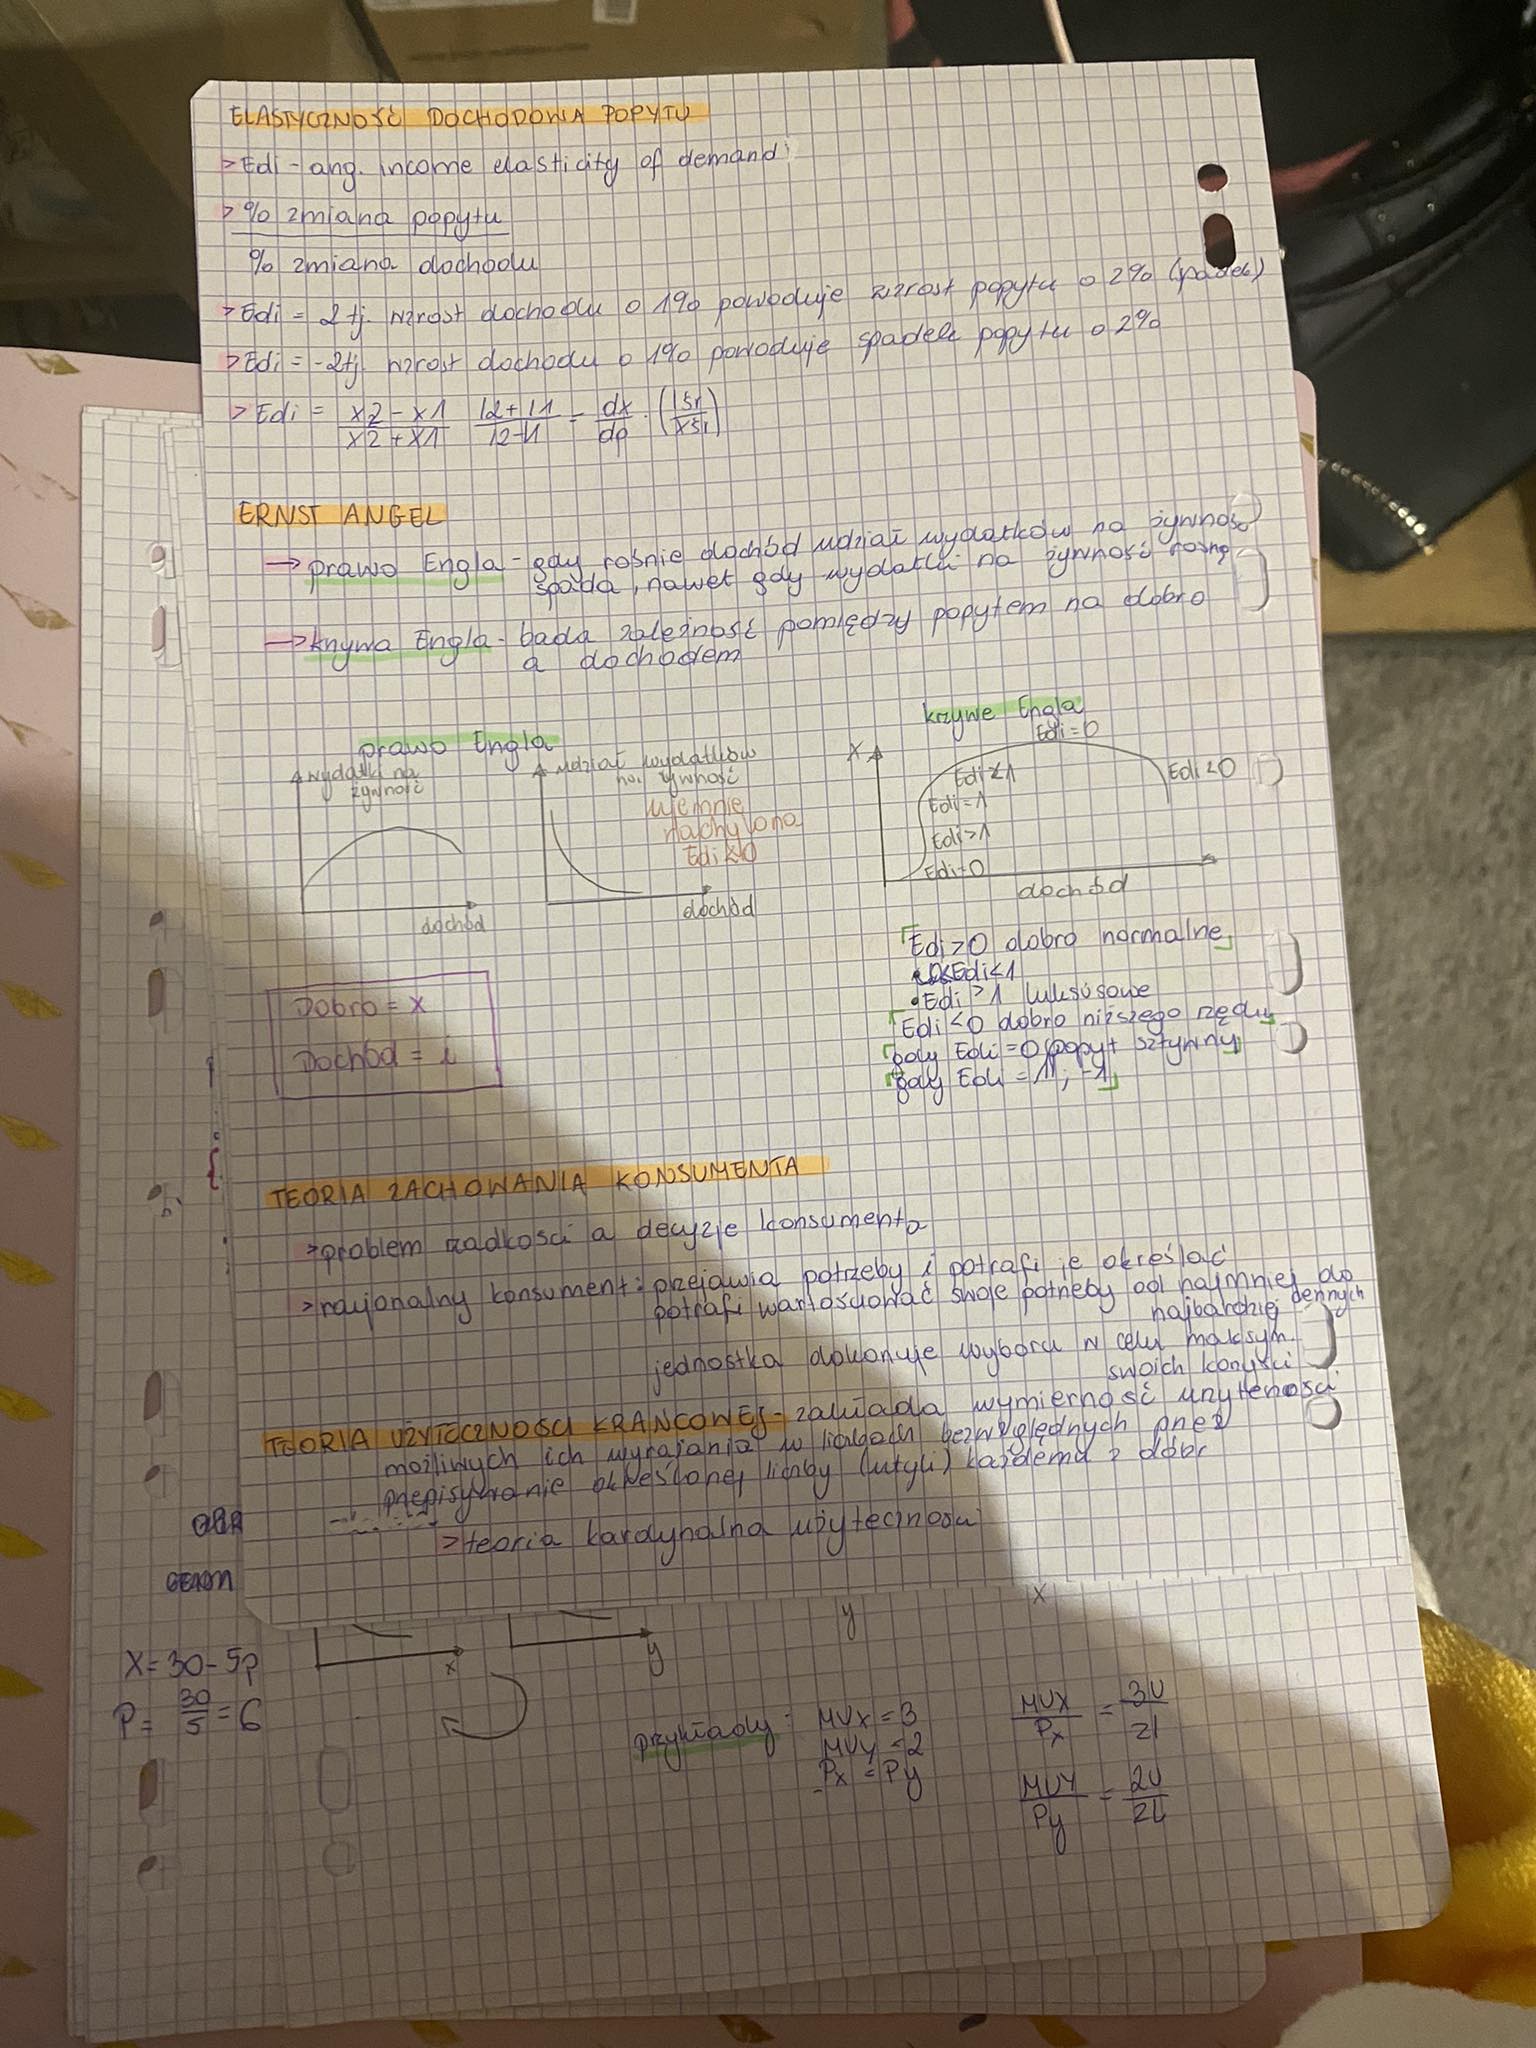 ELASTYCZNOŚĆ DOCHODOWA POPYTU
> Edi - ang. income elasticity of demand
> % zmiana popytu
% zmiana dochodu
> Edi = 2 tj. wzrost dochodu o 1% powoduje wzrost popytu o 2% (spadek)
> Edi = -2 tj. wzrost dochodu o 1% powoduje spadek popytu o 2%
> Edi = x2 - x1 / x2 + x1 I2 + I1 / I2 - I1 = dx / dp · (Iśr / xśr)
ERNST ANGEL
→ prawo Engla - gdy rośnie dochód udział wydatków na żywność
spada, nawet gdy wydatki na żywność rosną
→ krzywa Engla - bada zależność pomiędzy popytem na dobro
a dochodem
prawo Engla
wydatki na
żywność
dochód
udział wydatków
na żywność
ujemnie
nachylona
Edi<0
dochód
krzywe Engla
x
Edi=0
Edi<1
Edi<0
Edi=1
Edi>1
Edi=0
dochód
Dobro = x
Dochód = i
Edi>0 dobro normalne
0<Edi<1
• Edi >1 luksusowe
Edi <0 dobro niższego rzędu
gdy Edi =0 popyt sztywny
gdy Edi = 1; -1
TEORIA ZACHOWANIA KONSUMENTA
> problem rzadkości a decyzje konsumenta
> racjonalny konsument: przejawia potrzeby i potrafi je określać
potrafi wartościować swoje potrzeby od najmniej do
najbardziej cennych
jednostka dokonuje wyboru w celu maksym.
swoich korzyści
TEORIA UŻYTECZNOŚCI KRAŃCOWEJ - zakłada wymierność użyteczności
możliwych ich wyrażania w liczbach bezwzględnych przez
przepisywanie określonej liczby (utyli) każdemu z dóbr
> teoria kardynalna użyteczności
x
y
y
x
X = 30 - 5p
P = 30/5 = 6
przykłady: MUX = 3
MUY = 2
Px = Py
MUX / Px = 3U / zł
MUY / Py = 2U / zł